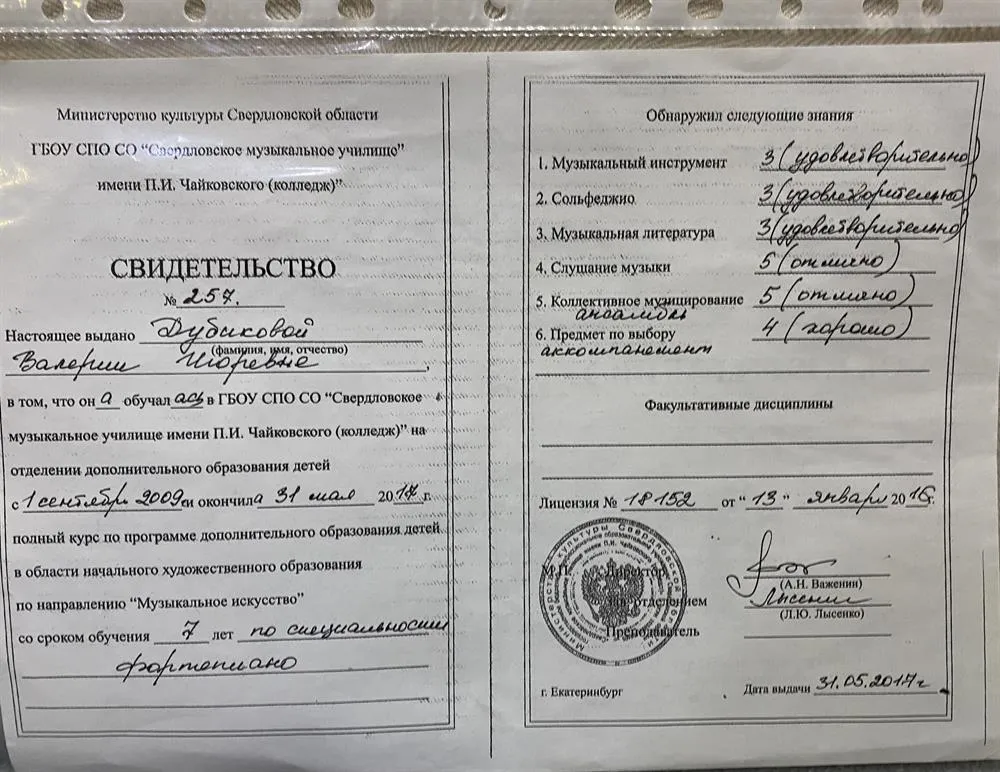 Министерство культуры Свердловской области
ГБОУ СПО СО “Свердловское музыкальное училище”
имени П.И. Чайковского (колледж)”
СВИДЕТЕЛЬСТВО
№ 257.
Настоящее выдано Дубиковой
(фамилия, имя, отчество)
Валерии Игоревне,
в том, что он а обучал ась в ГБОУ СПО СО “Свердловское
музыкальное училище имени П.И. Чайковского (колледж)” на
отделении дополнительного образования детей
с 1 сентября 2009г. и окончила 31 мая 2017 г.
полный курс по программе дополнительного образования детей
в области начального художественного образования
по направлению “Музыкальное искусство”
со сроком обучения 7 лет по специальности
фортепиано
Обнаружил следующие знания
1. Музыкальный инструмент 3 (удовлетворительно)
2. Сольфеджио 3 (удовлетворительно)
3. Музыкальная литература 3 (удовлетворительно)
4. Слушание музыки 5 (отлично)
5. Коллективное музицирование 5 (отлично)
ансамбль
6. Предмет по выбору 4 (хорошо)
аккомпанемент
Факультативные дисциплины
Лицензия № 18152 от “13” января 2016г.
М.П. Директор
(А.Н. Важенин)
Зав. отделением Лысенко
(Л.Ю. Лысенко)
Преподаватель
г. Екатеринбург Дата выдачи 31.05.2017г